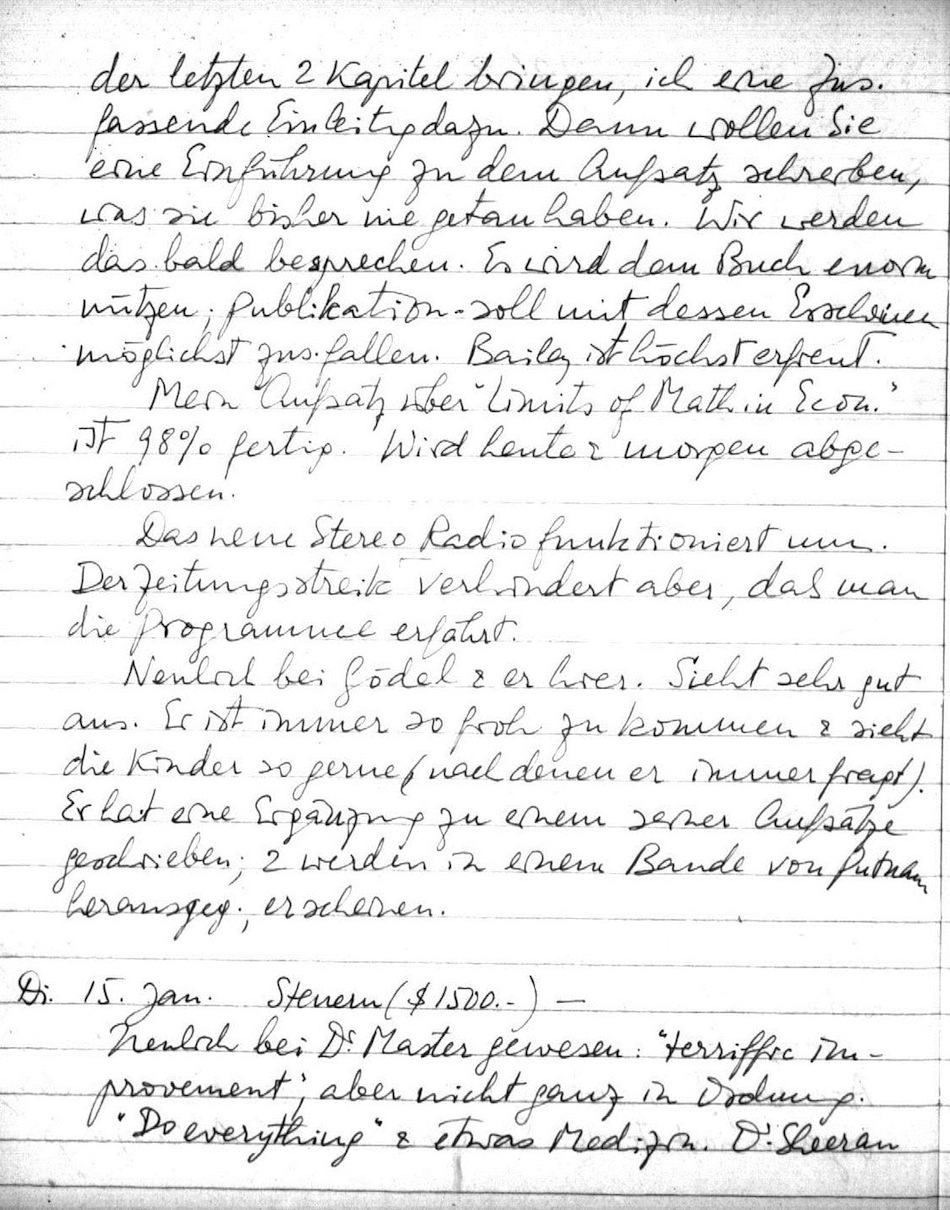 der letzten 2 Kapitel bringen, ich eine Zus.
fassende Einleitg dazu. Dann wollen Sie
eine Einführung zu dem Aufsatz schreiben,
was sie bisher nie getan haben. Wir werden
das bald besprechen. Es wird dem Buch enorm
nützen; Publikation soll mit dessen Erscheinen
möglichst zus.fallen. Bailey ist höchst erfreut.
Mein Aufsatz über "Limits of Math in Econ."
ist 98% fertig. Wird heute & morgen abge-
schlossen.
Das neue Stereo Radio funktioniert nun.
Der Zeitungsstreik verhindert aber, daß man
die Programme erfährt.
Neulich bei Gödel & er hier. Sieht sehr gut
aus. Er ist immer so froh zu kommen & sieht
die Kinder so gerne (nach denen er immer fragt).
Er hat eine Ergänzung zu einem seiner Aufsätze
geschrieben; 2 werden in einem Bande von Putnam
herausgeg., erscheinen.
Di. 15. Jan. Steuern ($1500.-) —
Neulich bei Dr. Master gewesen: "terriffic im-
provement", aber nicht ganz in Ordnung.
"Do everything" & etwas Medizin. Dr. Sheeran